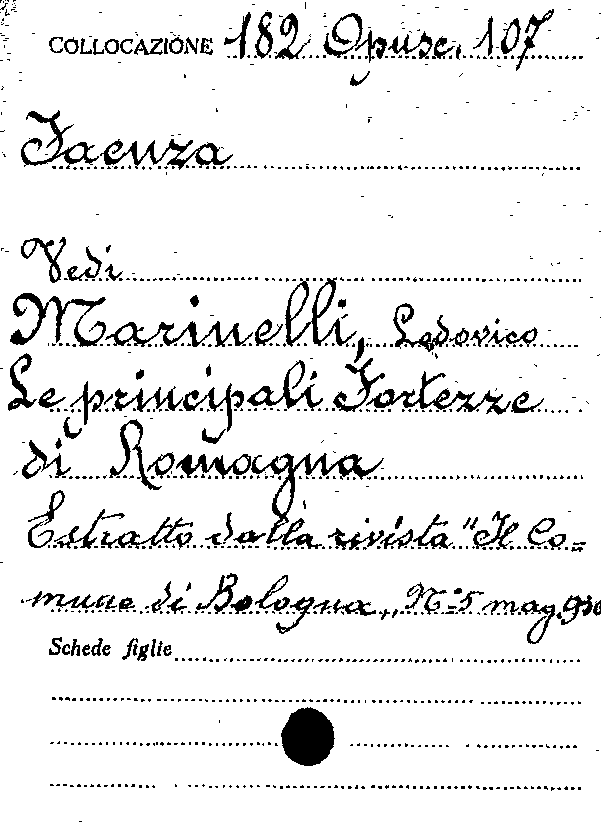 COLLOCAZIONE 182 Opusc. 107
Faenza
Vedi
Marinelli, Lodovico
Le principali Fortezze
di Romagna
Estratto dalla rivista "Il Co=
mune di Bologna„ N.º 5 mag. 930
Schede figlie